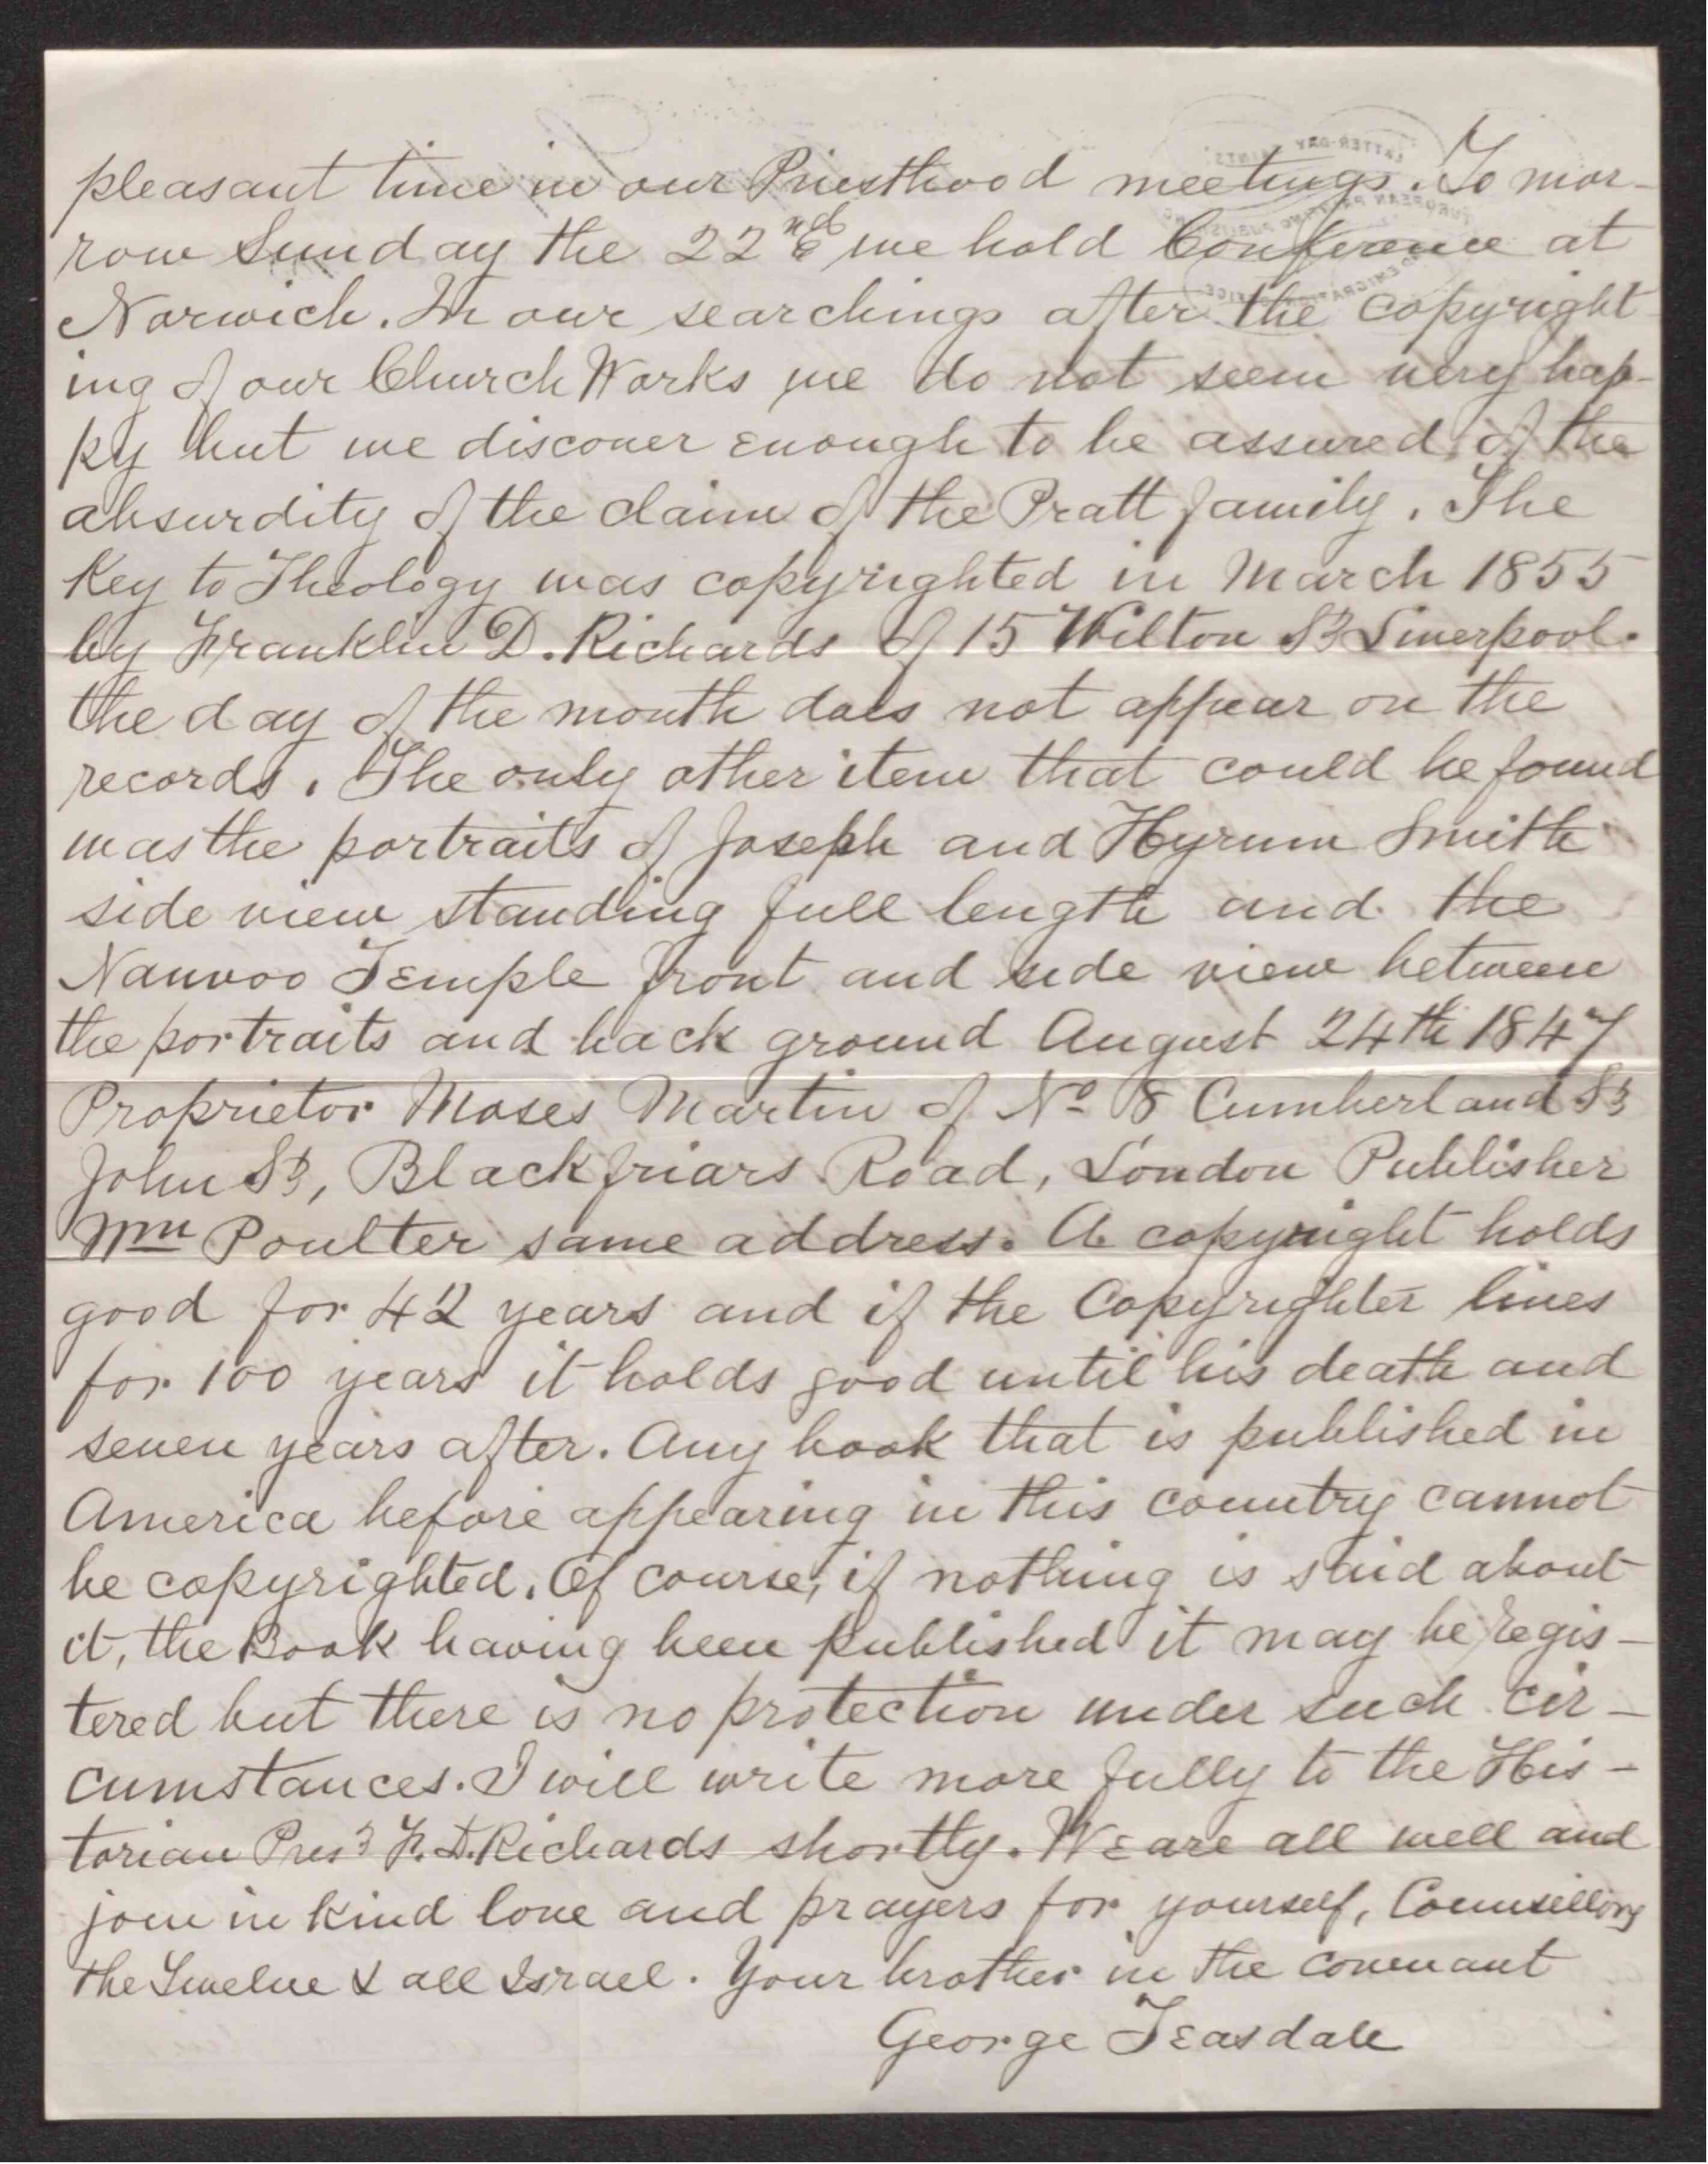 pleasant time in our Priesthood meetings. To mor-
row Sunday the 22nd we hold Conference at
Norwich. In our searchings after the copyright
ing of our Church Works we do not seem very hap-
py but we discover enough to be assured of the
absurdity of the claim of the Pratt family. The
Key to Theology was copyrighted in March 1855
by Franklin D. Richards of 15 Wilton St Liverpool.
the day of the month does not appear on the
records. The only other item that could be found
was the portraits of Joseph and Hyrum Smith
side view standing full length and the
Nauvoo Temple front and side view between
the portraits and back ground August 24th 1847
Proprietor Moses Martin of No 8 Cumberland St
John St, Blackfriars Road, London Publisher
Wm Poulter same address. A copyright holds
good for 42 years and if the Copyrighter lives
for 100 years it holds good until his death and
seven years after. Any book that is published in
America before appearing in this country cannot
be copyrighted. Of course, if nothing is said about
it, the Book having been published it may be regis-
tered but there is no protection under such cir-
cumstances. I will write more fully to the His-
torian Prest F. D. Richards shortly. We are all well and
join in kind love and prayers for yourself, Counsellors
the Twelve & all Israel. Your brother in the covenant
George Teasdale